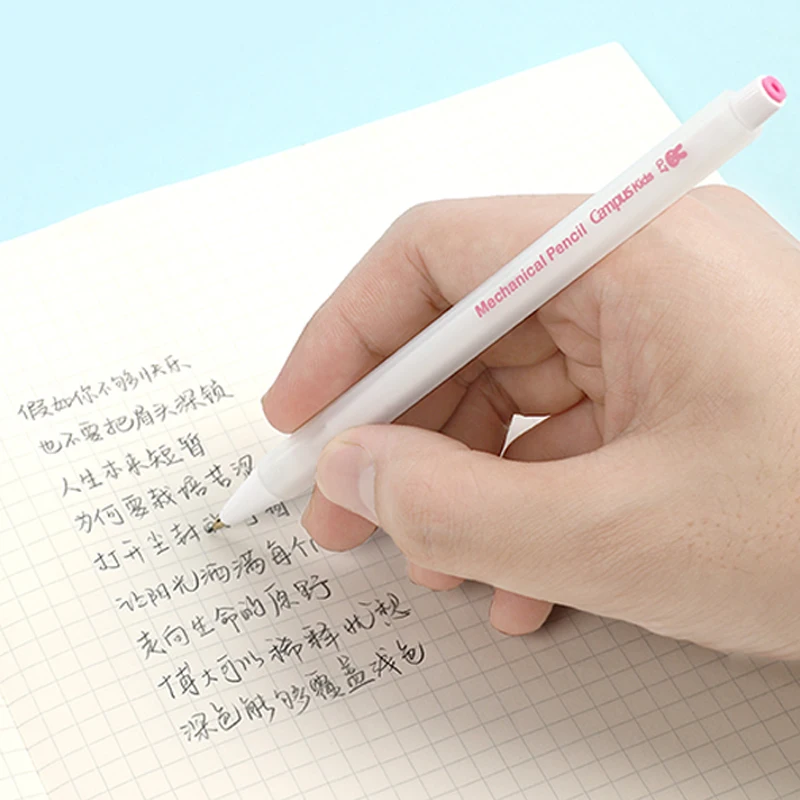 Mechanical Pencil Campus Kids
假如你不够快乐
也不要把眉头深锁
人生本来短暂
为何要栽培苦涩
打开尘封的 窗
让阳光洒满每个
走向生命的原野
博大可以稀释忧愁
深色能够覆盖浅色